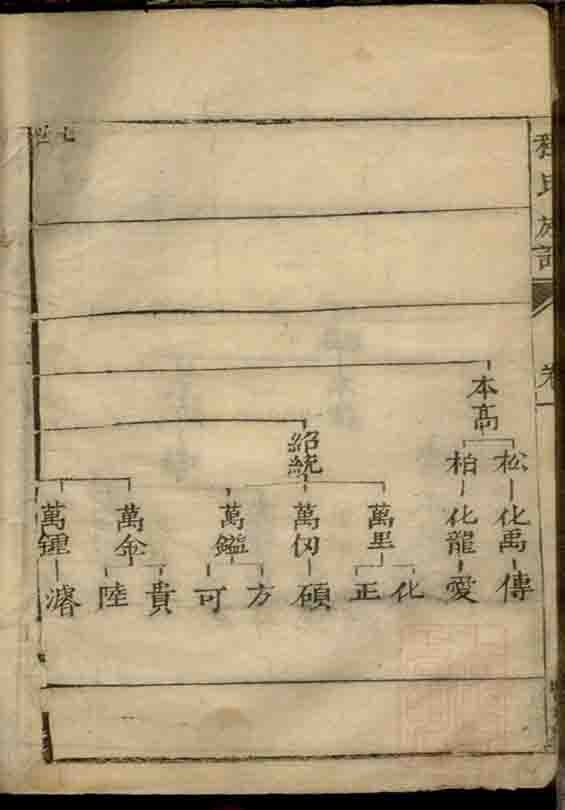 程氏族譜
卷一
本高
松 柏
化禹 化龍
傳 愛
紹統
萬里 萬仞 萬鎰
化 正 碩 方 可
萬金 萬鍾
貴 陸 濬
七世